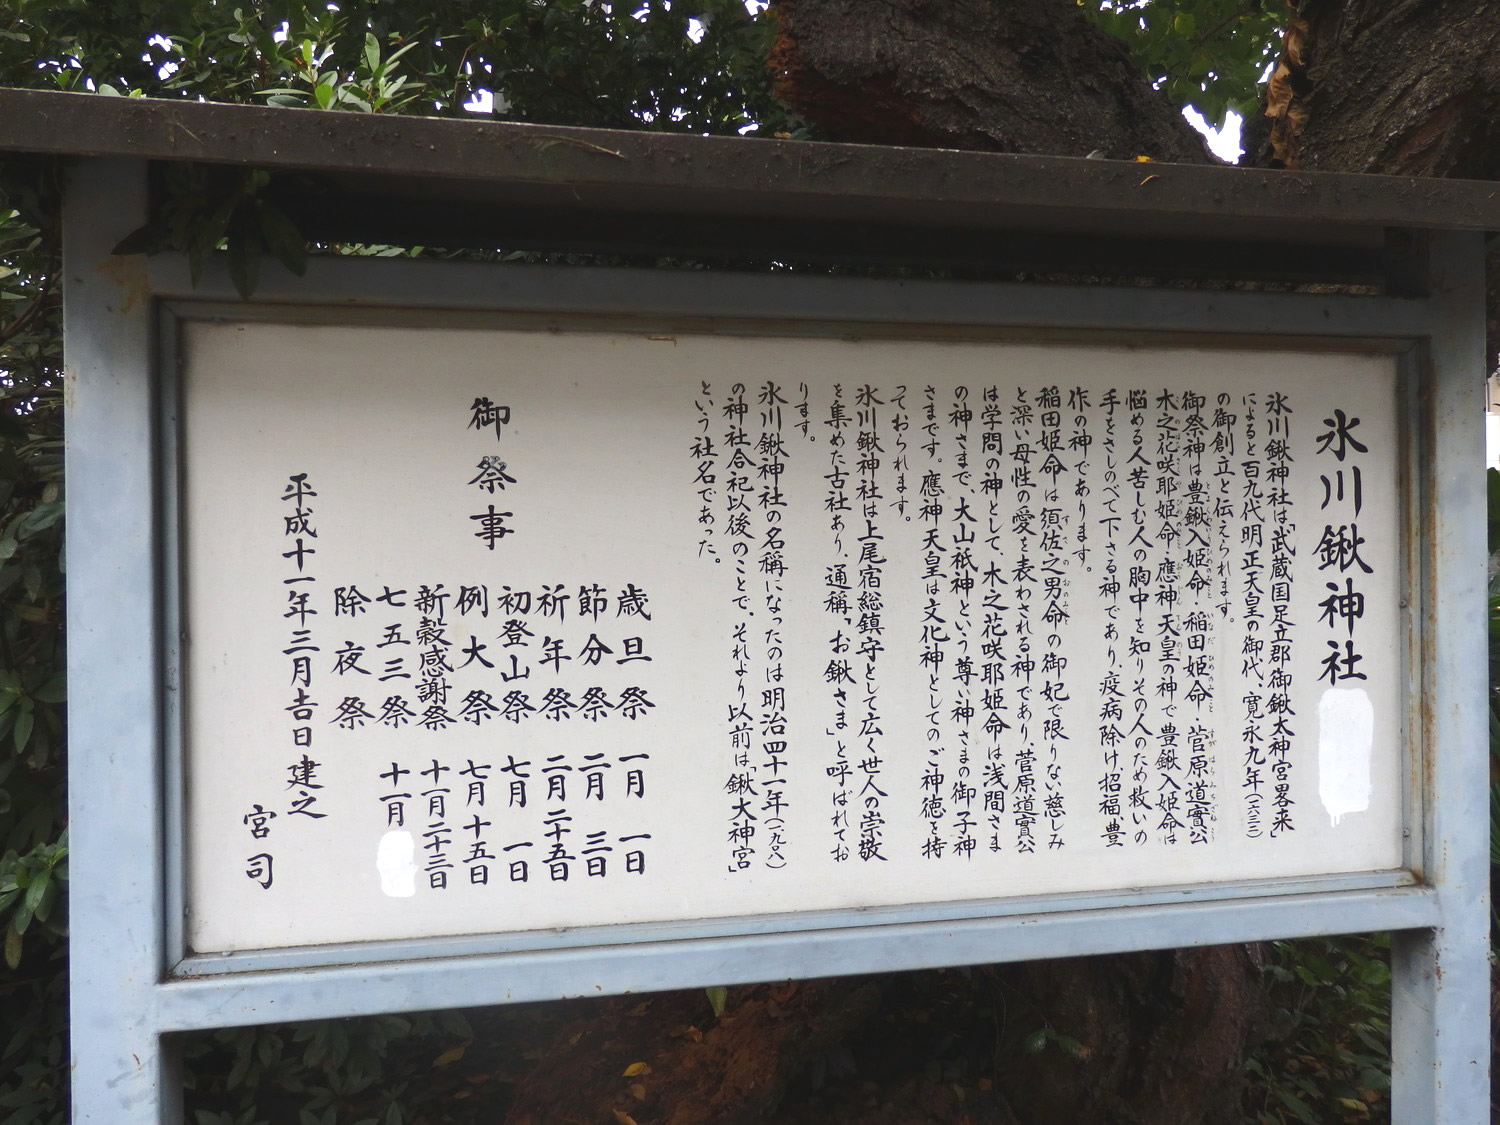 氷川鍬神社
氷川鍬神社は「武蔵国足立郡御鍬太神宮畧来」
によると百九代明正天皇の御代、寛永九年(一六三二)
の御創立と伝えられます。
御祭神は豊鍬入姫命・稲田姫命・菅原道實公
木之花咲耶姫命・應神天皇の神で豊鍬入姫命は
悩める人苦しむ人の胸中を知りその人のため救いの
手をさしのべて下さる神であり、疫病除け、招福豊
作の神であります。
稲田姫命は須佐之男命の御妃で限りない慈しみ
と深い母性の愛を表わされる神であり、菅原道實公
は学問の神として、木之花咲耶姫命は浅間さま
の神さまで、大山祇神という尊い神さまの御子神
さまです。應神天皇は文化神としてのご神徳を持
っておられます。
氷川鍬神社は上尾宿総鎮守として広く世人の崇敬
を集めた古社あり、通稱「お鍬さま」と呼ばれてお
ります。
氷川鍬神社の名稱になったのは明治四十一年(一九〇八)
の神社合祀以後のことで、それより以前は「鍬大神宮」
という社名であった。
御祭事
歳旦祭 一月一日
節分祭 二月三日
祈年祭 二月二十五日
初登山祭 七月一日
例大祭 七月十五日
新穀感謝祭 十一月二十三日
七五三祭 十一月
除夜祭
平成十一年三月吉日建之
宮司